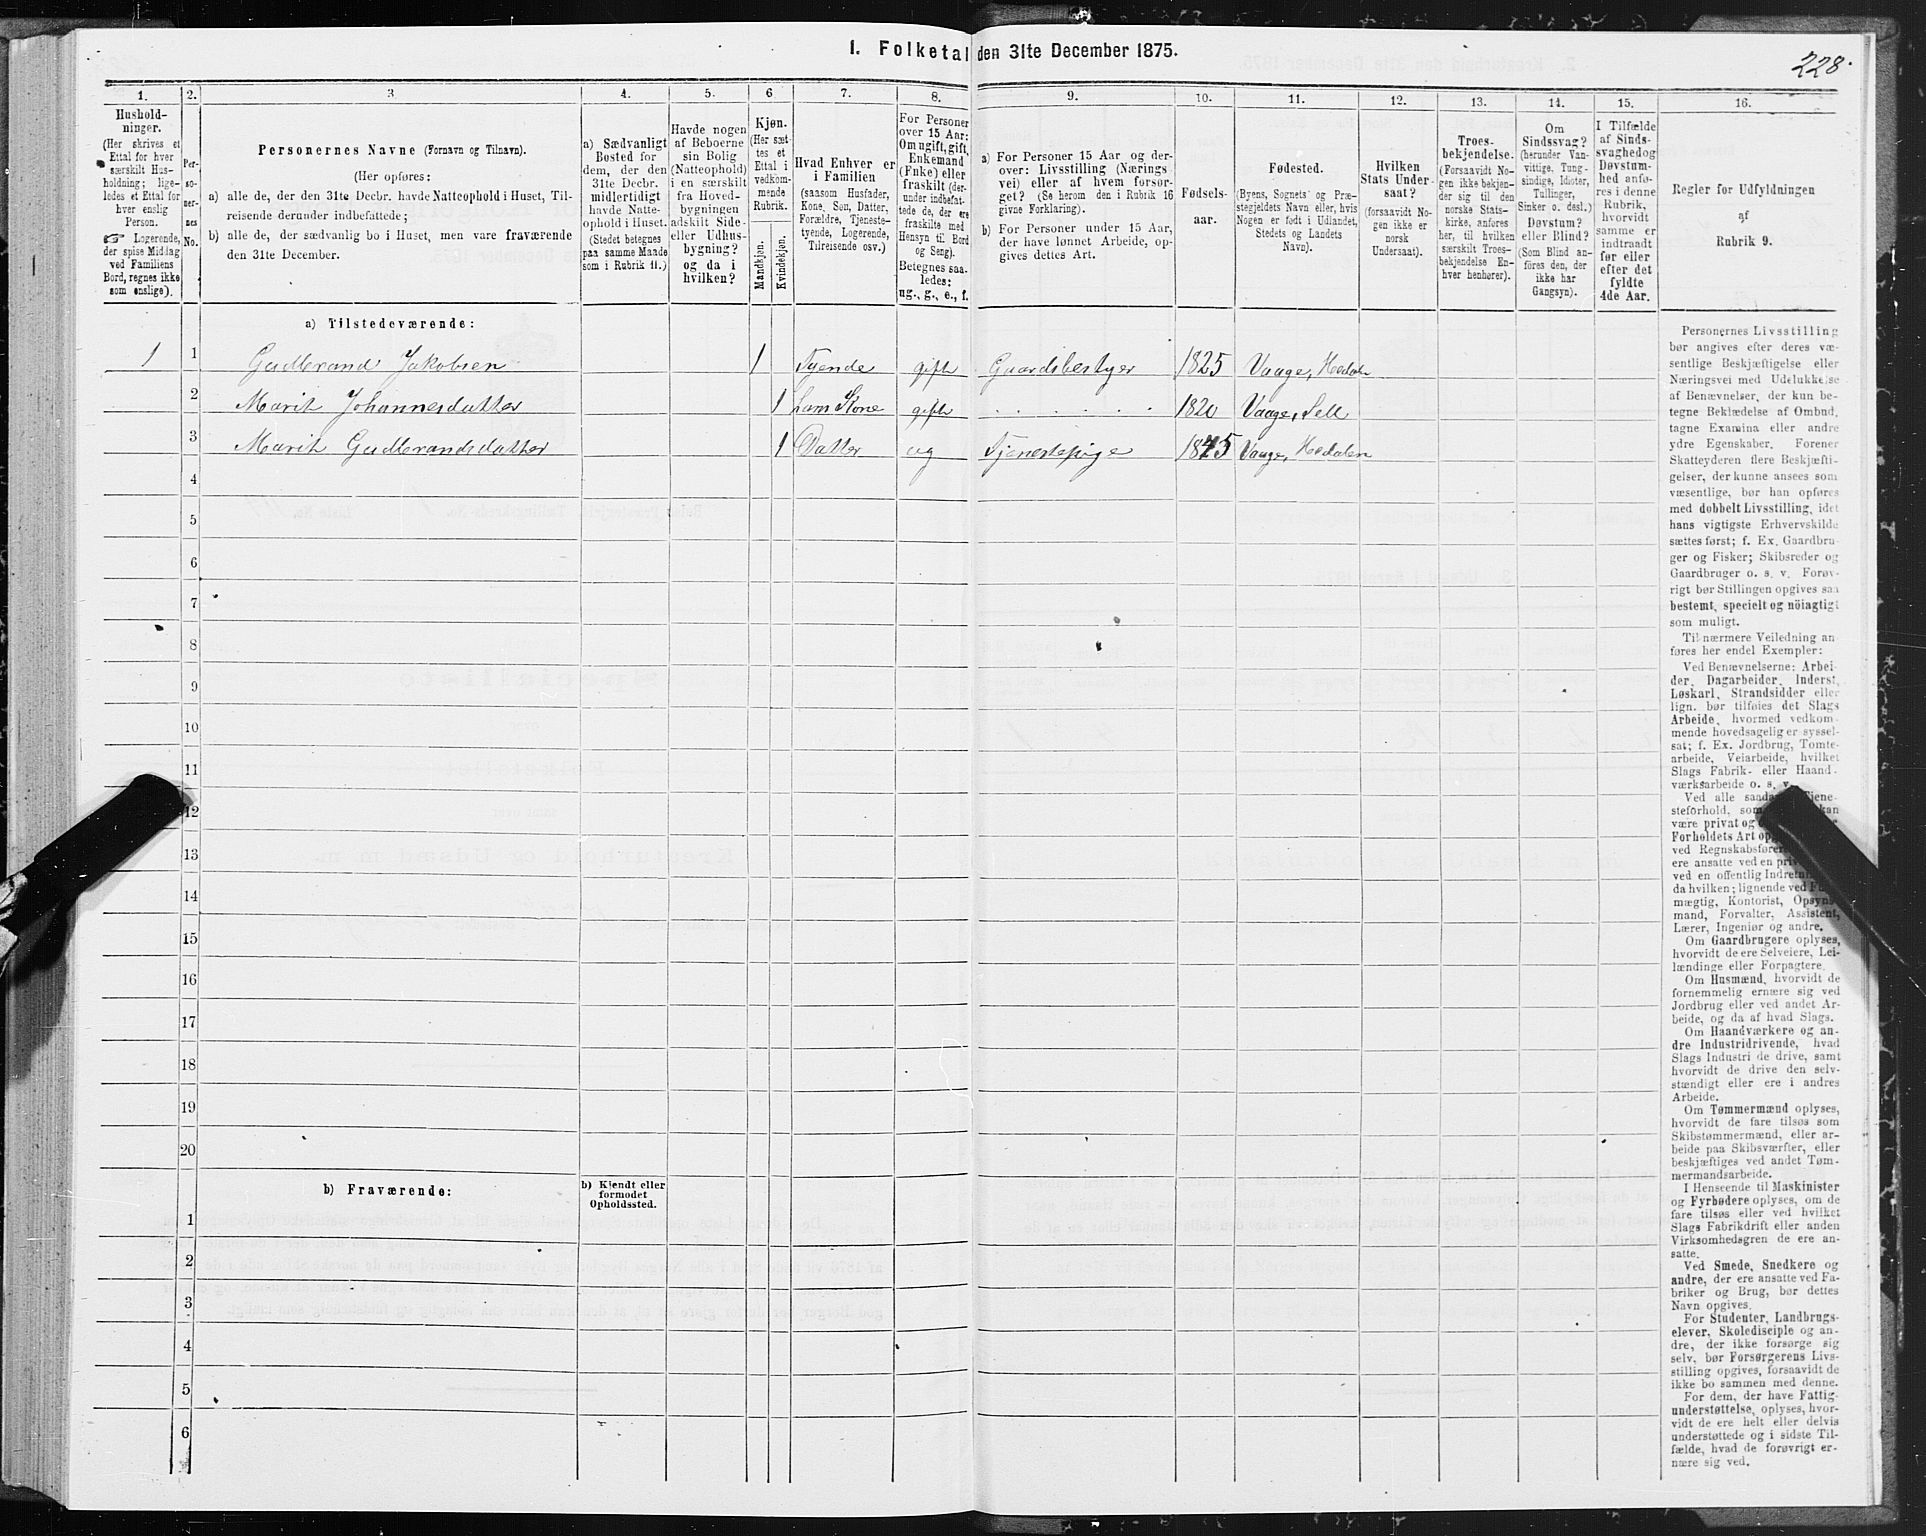 1. Folketal den 31te December 1875.
228.
1. 2. 3. 4. 5. 6 7. 8. 9. 10. 11. 12. 13. 14. 15. 16.
Hushold-
ninger.
(Her skrives et
Ettal for hver
særskilt Hus-
holdning; lige-
ledes et Ettal for
hver enslig
Person.
☞ Logerende,
der spise Middag
ved Familiens
Bord, regnes ikke
som enslige).
Per-
so-
ner-
nes
No.
Personernes Navne (Fornavn og Tilnavn).
(Her opføres:
a) alle de, der den 31te Decbr. havde Natteophold i Huset, Til-
reisende derunder indbefattede;
b) alle de, der sædvanlig bo i Huset, men vare fraværende
den 31te December.
a) Sædvanligt
Bosted for
dem, der den
31te Decbr.
midlertidigt
havde Natte-
ophold i Huset.
(Stedet betegnes
paa samme Maade
som i Rubrik 11.)
Havde nogen
af Beboerne
sin Bolig
(Natteophold)
i en særskilt
fra Hoved-
bygningen
adskilt Side-
eller Udhus-
bygning?
og da i
hvilken?
Kjøn.
(Her sæt-
tes et
Ettal i
vedkom-
mende
Rubrik.
Mandkjøn.
Kvindekjøn.
Hvad Enhver er
i Familien
(saasom Husfader,
Kone, Søn, Datter,
Forældre, Tjeneste-
tyende, Logerende,
Tilreisende osv.)
For Personer
over 15 Aar:
Om ugift, gift,
Enkemand
(Enke) eller
fraskilt (der-
under indbefat-
tede de, der ere
fraskilte med
Hensyn til Bord
og Seng).
Betegnes saa-
ledes:
ug., g., e., f.
a) For Personer 15 Aar og der-
over: Livsstilling (Nærings
vei) eller af hvem forsør-
get? (Se herom den i Rubrik 16
givne Forklaring).
b) For Personer under 15 Aar,
der have lønnet Arbeide, op-
gives dettes Art.
Fødsels-
aar.
Fødested.
(Byens, Sognets og Præ-
stegjeldets Navn eller, hvis
Nogen er født i Udlandet,
Stedets og Landets
Navn).
Hvilken
Stats Under-
saat?
(forsaavidt No-
gen ikke er
norsk
Undersaat).
Troes-
bekjendelse.
(Forsaavidt No-
gen ikke bekjen-
der sig til den
norske Stats-
kirke, anføres
her, til hvilken
særskilt Troes-
bekjendelse En-
hver henhører).
Om
Sindssvag?
(herunder Van-
vittige, Tung-
sindige, Idioter,
Tullinger,
Sinker o. desl.)
Døvstum?
eller Blind?
(Som Blind an-
føres den, der
ikke har
Gangsyn).
I Tilfælde
af Sinds-
svaghed og
Døvstum-
hed anfø-
res i denne
Rubrik,
hvorvidt
samme er
indtraadt
før eller
efter det
fyldte
4de Aar.
Regler for Udfyldningen
af
Rubrik 9.
a) Tilstedeværende:
1 1 Gudbrand Jakobsen 1 Tyende gift Gaardsbestyer 1825 Vaage, Hedalen
2 Marit Johannesdatter 1 hans Kone gift . . . . . . 1820 Vaage, Sell
3 Marit Gudbrandsdatter 1 Datter ug Tjenestepige 1845 Vaage, Hedalen
4
5
6
7
8
9
10
11
12
13
14
15
16
17
18
19
20
b) Fraværende:
b) Kjendt eller
formodet
Opholdssted.
1
2
3
4
5
6
Personernes Livsstilling
bør angives efter deres væ-
sentlige Beskjæftigelse eller
Næringsvei med Udelukkelse
af Benævnelser, der kun be-
tegne Beklædelse af Ombud,
tagne Examina eller andre
ydre Egenskaber. Forener
Skatteyderen flere Beskjæfti-
gelser, der kunne ansees som
væsentlige, bør han opføres
med dobbelt Livsstilling, idet
hans vigtigste Erhvervskilde
sættes først; f. Ex. Gaardbru-
ger og Fisker; Skibsreder og
Gaardbruger o. s. v. Forøv-
rigt bør Stillingen opgives saa
bestemt, specielt og nöiagtigt
som muligt.
Til nærmere Veiledning an
føres her endel Exempler:
Ved Benævnelserne: Arbei-
der, Dagarbeider, Inderst,
Løskarl, Strandsidder eller
lign. bør tilføies det Slags
Arbeide, hvormed vedkom-
mende hovedsagelig er syssel-
sat; f. Ex. Jordbrug, Tomte-
arbeide, Veiarbeide, hvilket
Slags Fabrik- eller Haand-
værksarbeide o. s. v.
Ved alle saada Tjene-
steforhold, som kan
være privat og
Forholdets Art op
ved Regnskabsføre
ere ansatte ved en priv
ved en offentlig Indretn
da hvilken; lignende ved Fu
mægtig, Kontorist, Opsyns
mand, Forvalter, Assistent,
Lærer, Ingeniør og andre.
Om Gaardbrugere oplyses,
hvorvidt de ere Selveiere, Lei-
lændinge eller Forpagtere.
Om Husmænd, hvorvidt de
fornemmelig ernære sig ved
Jordbrug eller ved andet Ar-
beide, og da af hvad Slags.
Om Haandværkere og an-
dre Industridrivende, hvad
Slags Industri de drive, samt
hvorvidt de drive den selv-
stændigt eller ere i andres
Arbeide.
Om Tømmermænd oplyses,
hvorvidt de fare tilsøs som
Skibstømmermænd, eller ar-
beide paa Skibsværfter, eller
beskjæftiges ved andet Tøm-
mermandsarbeide.
I Henseende til Maskinister
og Fyrbødere oplyses, om de
fare tilsøs eller ved hvilket
Slags Fabrikdrift eller anden
Virksomhedsgren de ere an-
satte.
Ved Smede, Snedkere og
andre, der ere ansatte ved Fa-
briker og Brug, bør dettes
Navn opgives.
For Studenter, Landbrugs-
elever, Skoledisciple og an-
dre, der ikke forsørge sig
selv, bør Forsørgerens Livs-
stilling opgives, forsaavidt de
ikke bo sammen med denne.
For dem, der have Fattig-
understøttelse, oplyses, hvor-
vidt de ere helt eller delvis
understøttede og i sidste Til-
fælde, hvad de forøvrigt er-
nære sig ved.